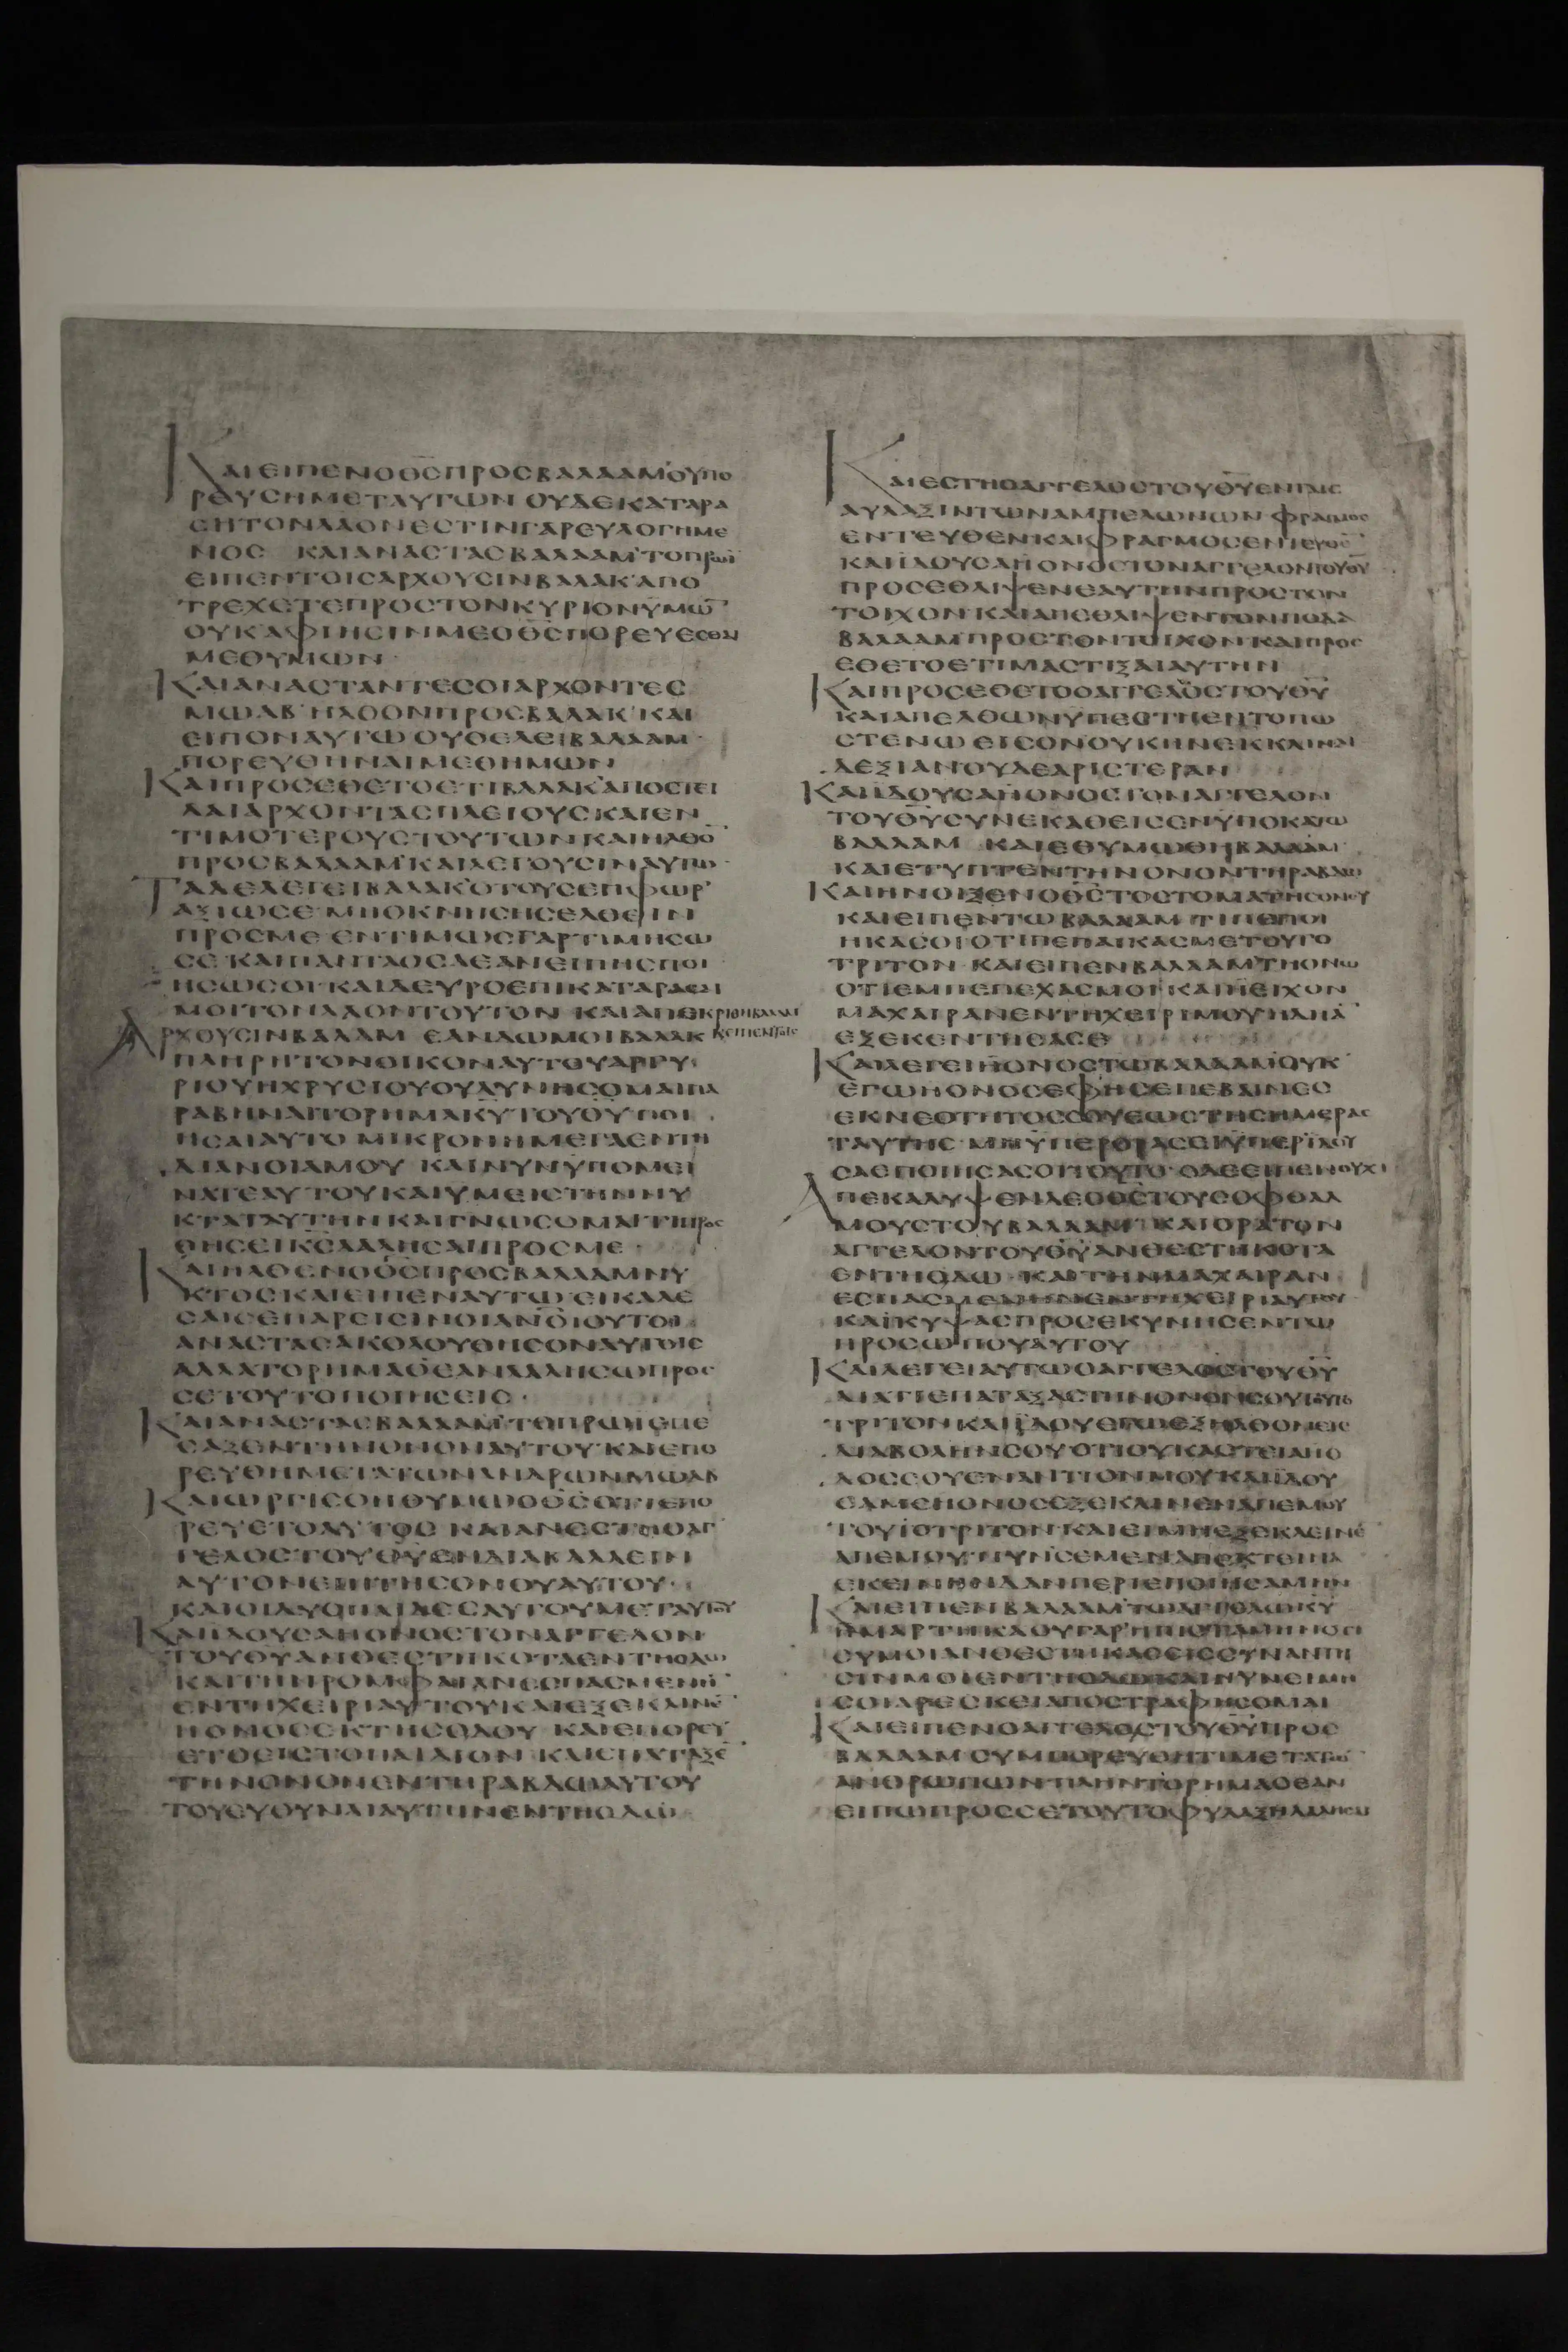 ΚΑΙΕΙΠΕΝΟΘ̅Σ̅ΠΡΟΣΒΑΛΑΑΜΟΥΠΟ
ΡΕΥΣΗΜΕΤΑΥΤΩΝ ΟΥΔΕΚΑΤΑΡΑ
ΣΗΤΟΝΛΑΟΝΕΣΤΙΝΓΑΡΕΥΛΟΓΗΜΕ
ΝΟΣ ΚΑΙΑΝΑΣΤΑΣΒΑΛΑΑΜΤΟΠΡΩΪ
ΕΙΠΕΝΤΟΙΣΑΡΧΟΥΣΙΝΒΑΛΑΚ ΑΠΟ
ΤΡΕΧΕΤΕΠΡΟΣΤΟΝΚΥΡΙΟΝΥΜΩ̅
ΟΥΚΑΦΙΗΣΙΝΜΕΟΘ̅Σ̅ΠΟΡΕΥΕΣΘΑΙ
ΜΕΘΥΜΩΝ
ΚΑΙΑΝΑΣΤΑΝΤΕΣΟΙΑΡΧΟΝΤΕΣ
ΜΩΑΒ ΗΛΘΟΝΠΡΟΣΒΑΛΑΚ ΚΑΙ
ΕΙΠΟΝΑΥΤΩ ΟΥΘΕΛΕΙΒΑΛΑΑΜ
ΠΟΡΕΥΘΗΝΑΙΜΕΘΗΜΩΝ
ΚΑΙΠΡΟΣΕΘΕΤΟΕΤΙΒΑΛΑΚΑΠΟΣΤΕΙ
ΛΑΙΑΡΧΟΝΤΑΣΠΛΕΙΟΥΣΚΑΙΕΝ
ΤΙΜΟΤΕΡΟΥΣΤΟΥΤΩΝΚΑΙΗΛΘΟ̅
ΠΡΟΣΒΑΛΑΑΜ ΚΑΙΛΕΓΟΥΣΙΝΑΥΤΩ
ΤΑΔΕΛΕΓΕΙΒΑΛΑΚΟΤΟΥΣΕΠΦΩΡ
ΑΞΙΩΣΕ ΜΗΟΚΝΗΣΗΣΕΛΘΕΙΝ
ΠΡΟΣΜΕ ΕΝΤΙΜΩΣΓΑΡΤΙΜΗΣΩ
ΣΕ ΚΑΙΠΑΝΤΑΟΣΑΕΑΝΕΙΠΗΣΠΟΙ
ΗΣΩΣΟΙ ΚΑΙΔΕΥΡΟΕΠΙΚΑΤΑΡΑΣΑΙ
ΜΟΙΤΟΝΛΑΟΝΤΟΥΤΟΝ ΚΑΙΑΠΕΚΡΙΘΗΒΑΛΑΑΜ
ΚΕΙΠΕΝΤΟΙΣ
ΑΡΧΟΥΣΙΝΒΑΛΑΑΜ ΕΑΝΔΩΜΟΙΒΑΛΑΚ
ΠΛΗΡΗΤΟΝΟΙΚΟΝΑΥΤΟΥΑΡΓΥ
ΡΙΟΥΗΧΡΥΣΙΟΥΟΥΔΥΝΗΣΟΜΑΙΠΑ
ΡΑΒΗΝΑΙΤΟΡΗΜΑΚ̅Υ̅ΤΟΥΘ̅Υ̅ΠΟΙ
ΗΣΑΙΑΥΤΟ ΜΙΚΡΟΝΗΜΕΓΑΕΝΤΗ
ΔΙΑΝΟΙΑΜΟΥ ΚΑΙΝΥΝΥΠΟΜΕΙ
ΝΑΤΕΑΥΤΟΥΚΑΙΥΜΕΙΣΤΗΝΝΥ
ΚΤΑΤΑΥΤΗΝΚΑΙΓΝΩΣΟΜΑΙΤΙΠΡΟΣ
ΘΗΣΕΙΚ̅Σ̅ΛΑΛΗΣΑΙΠΡΟΣΜΕ
ΚΑΙΗΛΘΕΝΟΘ̅Σ̅ΠΡΟΣΒΑΛΑΑΜΝΥ
ΚΤΟΣΚΑΙΕΙΠΕΝΑΥΤΩ ΕΙΚΑΛΕ
ΣΑΙΣΕΠΑΡΕΙΣΙΝΟΙΑΝ̅Ο̅Ι̅ΟΥΤΟΙ
ΑΝΑΣΤΑΣΑΚΟΛΟΥΘΗΣΟΝΑΥΤΟΙΣ
ΑΛΛΑΤΟΡΗΜΑΟΕΑΝΛΑΛΗΣΩΠΡΟΣ
ΣΕΤΟΥΤΟΠΟΙΗΣΕΙΣ
ΚΑΙΑΝΑΣΤΑΣΒΑΛΑΑΜΤΟΠΡΩΙΕΠΕ
ΣΑΞΕΝΤΗΝΟΝΟΝΑΥΤΟΥ ΚΑΙΕΠΟ
ΡΕΥΘΗΜΕΤΑΤΩΝΑΝΔΡΩΝΜΩΑΒ
ΚΑΙΩΡΓΙΣΘΗΘΥΜΩΟΘ̅Σ̅ΟΤΙΕΠΟ
ΡΕΥΕΤΟΑΥΤΟΣ ΚΑΙΑΝΕΣΤΗΟΑΓ
ΓΕΛΟΣΤΟΥΘ̅Υ̅ΕΝΔΙΑΒΑΛΛΕΙΝ
ΑΥΤΟΝΕΠΙΤΗΣΟΝΟΥΑΥΤΟΥ
ΚΑΙΟΙΔΥΟΠΑΙΔΕΣΑΥΤΟΥΜΕΤΑΥΤΟΥ
ΚΑΙΙΔΟΥΣΑΗΟΝΟΣΤΟΝΑΓΓΕΛΟΝ
ΤΟΥΘ̅Υ̅ΑΝΘΕΣΤΗΚΟΤΑΕΝΤΗΟΔΩ
ΚΑΙΤΗΝΡΟΜΦΑΙΑΝΕΣΠΑΣΜΕΝΗ̅
ΕΝΤΗΧΕΙΡΙΑΥΤΟΥΚΑΙΕΞΕΚΛΙΝΕ̅
ΗΟΝΟΣΕΚΤΗΣΟΔΟΥ ΚΑΙΕΠΟΡΕΥ
ΕΤΟΕΙΣΤΟΠΑΙΔΙΟΝ ΚΑΙΕΠΑΤΑΞΕ̅
ΤΗΝΟΝΟΝΕΝΤΗΡΑΒΔΩΑΥΤΟΥ
ΤΟΥΕΥΘΥΝΑΙΑΥΤΗΝΕΝΤΗΟΔΩ
ΚΑΙΕΣΤΗΟΑΓΓΕΛΟΣΤΟΥΘ̅Υ̅ΕΝΤΑΙΣ
ΑΥΛΑΞΙΝΤΩΝΑΜΠΕΛΩΝΩΝ ΦΡΑΓΜΟΣ
ΕΝΤΕΥΘΕΝΚΑΙΦΡΑΓΜΟΣΕΝΤΕΥΘΕ̅
ΚΑΙΙΔΟΥΣΑΗΟΝΟΣΤΟΝΑΓΓΕΛΟΝΤΟΥΘ̅Υ̅
ΠΡΟΣΕΘΛΙΨΕΝΕΑΥΤΗΝΠΡΟΣΤΟΝ
ΤΟΙΧΟΝ ΚΑΙΑΠΕΘΛΙΨΕΝΤΟΝΠΟΔΑ
ΒΑΛΑΑΜΠΡΟΣΤΟΝΤΟΙΧΟΝ ΚΑΙΠΡΟΣ
ΕΘΕΤΟΕΤΙΜΑΣΤΙΞΑΙΑΥΤΗΝ
ΚΑΙΠΡΟΣΕΘΕΤΟΟΑΓΓΕΛΟΣΤΟΥΘ̅Υ̅
ΚΑΙΑΠΕΛΘΩΝΥΠΕΣΤΗΕΝΤΟΠΩ
ΣΤΕΝΩ ΕΙΣΟΝΟΥΚΗΝΕΚΚΛΙΝΑΙ
ΔΕΞΙΑΝΟΥΔΕΑΡΙΣΤΕΡΑΝ
ΚΑΙΙΔΟΥΣΑΗΟΝΟΣΤΟΝΑΓΓΕΛΟΝ
ΤΟΥΘ̅Υ̅ΣΥΝΕΚΑΘΕΙΣΕΝΥΠΟΚΑΤΩ
ΒΑΛΑΑΜ ΚΑΙΕΘΥΜΩΘΗΒΑΛΑΑΜ
ΚΑΙΕΤΥΠΤΕΝΤΗΝΟΝΟΝΤΗΡΑΒΔΩ
ΚΑΙΗΝΟΙΞΕΝΟΘ̅Σ̅ΤΟΣΤΟΜΑΤΗΣΟΝΟΥ
ΚΑΙΕΙΠΕΝΤΩΒΑΛΑΑΜ ΤΙΠΕΠΟΙ
ΗΚΑΣΟΙΟΤΙΠΕΠΑΙΚΑΣΜΕΤΟΥΤΟ
ΤΡΙΤΟΝ ΚΑΙΕΙΠΕΝΒΑΛΑΑΜΤΗΟΝΩ
ΟΤΙΕΜΠΕΠΕΧΑΣΜΟΙ ΚΑΙΕΙΕΙΧΟΝ
ΜΑΧΑΙΡΑΝΕΝΤΗΧΕΙΡΙΜΟΥ
ΕΞΕΚΕΝΤΗΣΑΣΕ
ΚΑΙΛΕΓΕΙΗΟΝΟΣΤΩΒΑΛΑΑΜΟΥΚ
ΕΓΩΗΟΝΟΣΕΦΗΣΕΠΕΒΑΙΝΕΣ
ΕΚΝΕΟΤΗΤΟΣΣΟΥΕΩΣΤΗΣΗΜΕΡΑΣ
ΤΑΥΤΗΣ ΜΗΥΠΕΡΟΡΑΣΕΙΥΠΕΡΙΔΟΥ
ΣΑΕΠΟΙΗΣΑΣΟΙΟΥΤΩ ΟΔΕΕΙΠΕΝΟΥΧΙ
ΑΠΕΚΑΛΥΨΕΝΔΕΟΘ̅Σ̅ΤΟΥΣΟΦΘΑΛ
ΜΟΥΣΤΟΥΒΑΛΑΑΜ ΚΑΙΟΡΑΤΟΝ
ΑΓΓΕΛΟΝΤΟΥΘ̅Υ̅ΑΝΘΕΣΤΗΚΟΤΑ
ΕΝΤΗΟΔΩ ΚΑΙΤΗΝΜΑΧΑΙΡΑΝ
ΕΣΠΑΣΜΕΝΗΝΕΝΤΗΧΕΙΡΙΑΥΤΟΥ
ΚΑΙΚΥΨΑΣΠΡΟΣΕΚΥΝΗΣΕΝΤΩ
ΠΡΟΣΩΠΟΥΑΥΤΟΥ
ΚΑΙΛΕΓΕΙΑΥΤΩΟΑΓΓΕΛΟΣΤΟΥΘ̅Υ̅
ΔΙΑΤΙΕΠΑΤΑΞΑΣΤΗΝΟΝΟΝΣΟΥΤΟΥΤΟ
ΤΡΙΤΟΝΚΑΙΙΔΟΥΕΓΩΕΞΗΛΘΟΝΕΙΣ
ΔΙΑΒΟΛΗΝΣΟΥ ΟΤΙΟΥΚΑΣΤΕΙΑΗΟ
ΔΟΣΣΟΥΕΝΑΝΤΙΟΝΜΟΥΚΑΙΙΔΟΥ
ΣΑΜΕΗΟΝΟΣΕΞΕΚΛΙΝΕΝΑΠΕΜΟΥ
ΤΟΥΤΟΤΡΙΤΟΝ ΚΑΙΕΙΜΗΕΞΕΚΛΕΙΝΕ̅
ΑΠΕΜΟΥ ΝΥΝΣΕΜΕΝΑΠΕΚΤΕΙΝΑ
ΕΚΕΙΝΗΝΔΑΝΠΕΡΙΕΠΟΙΗΣΑΜΗΝ
ΚΑΙΕΙΠΕΝΒΑΛΑΑΜΤΩΑΓΓΕΛΩΚ̅Υ̅
ΗΜΑΡΤΗΚΑΟΥΓΑΡΗΠΙΣΤΑΜΗΝΟΤΙ
ΣΥΜΟΙΑΝΘΕΣΤΗΚΑΣΕΙΣΣΥΝΑΝΤΗ
ΣΙΝΜΟΙΕΝΤΗΟΔΩΚΑΙΝΥΝΕΙΜΗ
ΣΟΙΑΡΕΣΚΕΙΑΠΟΣΤΡΑΦΗΣΟΜΑΙ
ΚΑΙΕΙΠΕΝΟΑΓΓΕΛΟΣΤΟΥΘ̅Υ̅ΠΡΟΣ
ΒΑΛΑΑΜ ΣΥΜΠΟΡΕΥΘΗΤΙΜΕΤΑΤΩ̅
ΑΝΘΡΩΠΩΝΠΛΗΝΤΟΡΗΜΑΟΕΑΝ
ΕΙΠΩΠΡΟΣΣΕΤΟΥΤΟΦΥΛΑΞΗΛΑΛΗΣΑΙ